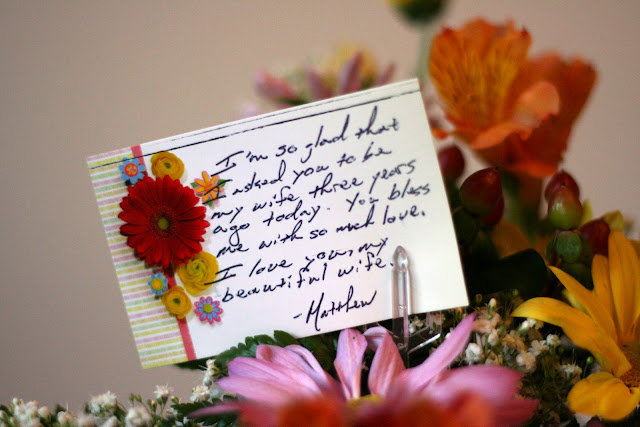 I'm so glad that
I asked you to be
my wife three years
ago today. You bless
me with so much love.
I love you, my
beautiful wife.
-Matthew